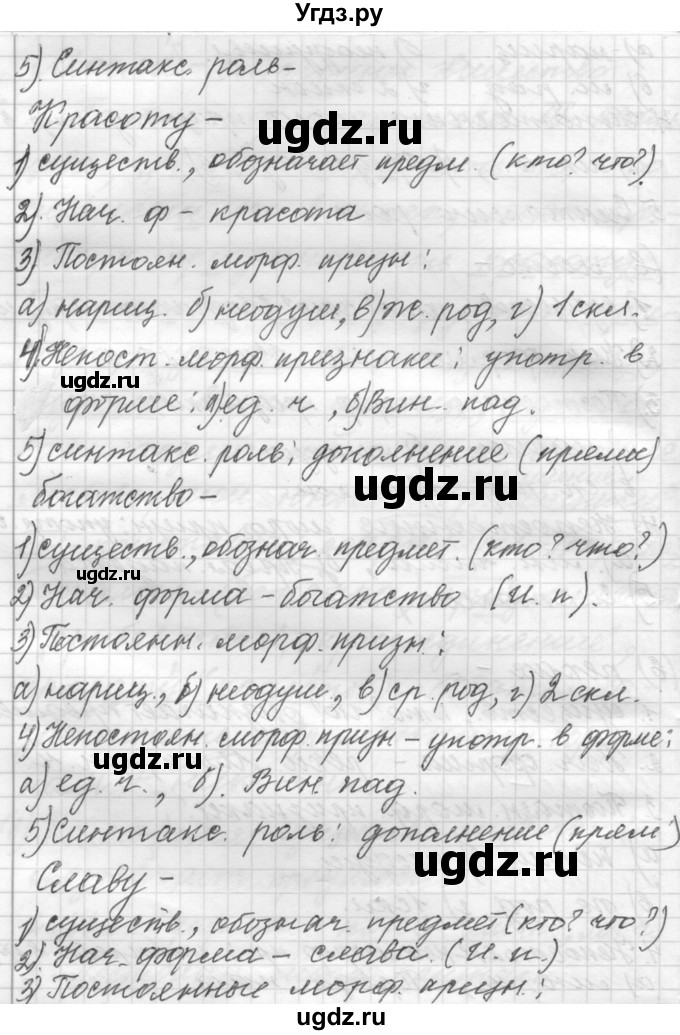 Угдз.ру
5). Синтакс. роль-
Красоту-
ugdz.ru
1) существ., обозначает предм. (кто? что?)
2). Нач. ф - красота
3) Постоян. морф. призн:
а) нариц. б) неодуш, в) ж. род, г) 1 скл.
4). Непост. морф. признаки: употр. в
ugdz.ru
форме: а) ед. ч, б) Вин. пад.
5) синтакс. роль: дополнение (прямое)
ugdz.ru
богатство-
1) существ., обознач. предмет. (кто? что?)
ugdz.ru
2) Нач. форма - богатство (И. п).
3) Постоянн. морф. призн:
а) нариц., б) неодуш., в) ср. род, г) 2 скл.
4) Непостоян. морф. призн - употр. в форме:
ugdz.ru
а) ед. ч., б). Вин. пад.
5) Синтакс. роль: дополнение (прям)
ugdz.ru
Славу-
1) существ., обознач. предмет (кто? что?)
2). Нач. форма - слава. (И. п.)
3) Постоянные морф. призн.:
ugdz.ru